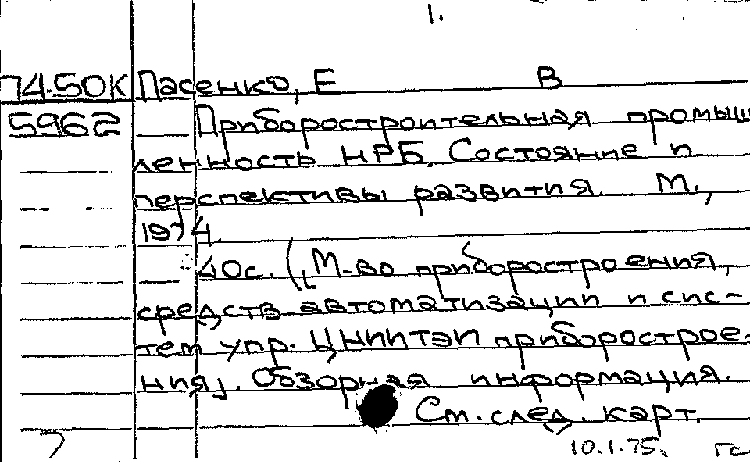 1.
74.50К Пасенко, Е В
5962 Приборостроительная промыш
ленность НРБ. Состояние и
перспективы развития. М.,
1974.
40с. (М-во приборостроения,
средств автоматизации и сис-
тем упр. ЦНИИТЭИ приборострое-
ния). Обзорная информация.
См. след. карт.
10.1.75.